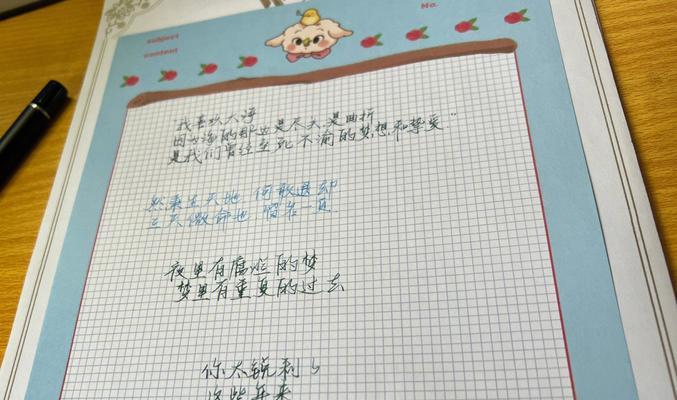 subject
content
No.
"我喜欢大海
因为海的那边是尽头,是曲折
是我们曾经至死不渝的梦想和挚爱"
既来生天地 何敢退却
与天做命也 留名一页
夜里有腐烂的梦
梦里有重复的过去
你太锐利了
这些年来